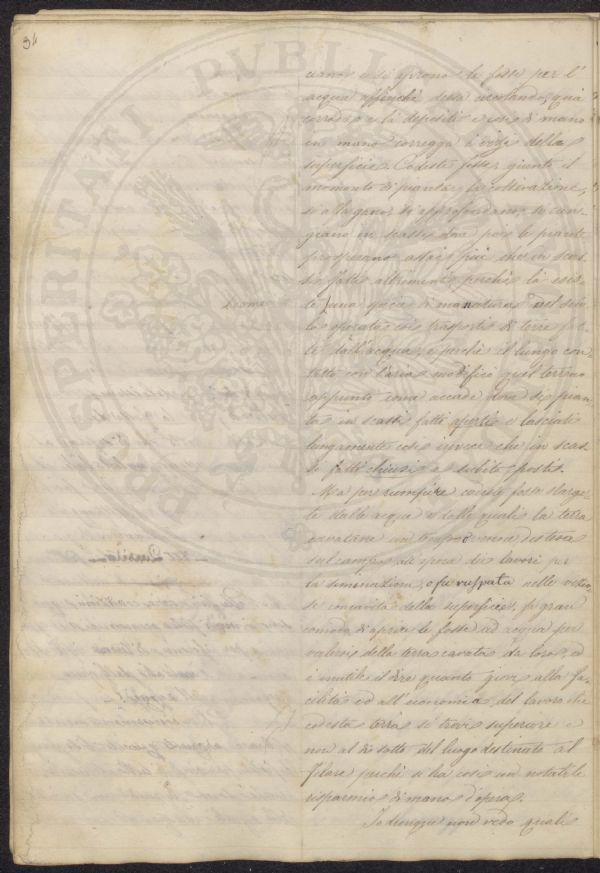 34
PROSPERITATI PVBLIC
ciano e si aprono le fosse per l'
acqua affinché dessa scolando, qua
corroda e là depositi e così di mano
in mano corregga i vizi della
superficie. Codeste fosse, giunto il
momento di piantar la coltivazione,
si allargano, si approfondano, si can-
giano in scassi dove poi le piante
prosperano assai più che in scas-
si fatti altrimenti, perchè là esis-
te una specie di manatura nel suo-
lo operata coi trasporti di terra fat-
ti dall'acqua, e perchè il lungo con-
tatto con l'aria modificò quel terreno
appunto come accade dove si pian-
ta in scassi fatti aperti e lasciati
lungamente così invece che in scas-
si fatti chiusi e subito posti.
Ma per riempire codeste fosse slarga-
te dalle acque e dalle quali la terra
cavatane un tempo venne distesa
sul campo ad opera dei lavori per
la seminazione, o fu ruspata nelle
concavità della superficie, fa gran
comodo di aprire le fosse ad acqua per
valersi della terra cavata da loro, ed
è inutile il dire quanto giovi alla fa-
cilità ed all'economia del lavoro che
codesta terra si trovi superiore e
non al di sotto del luogo destinato al
filare perchè si ha così un notabile
risparmio di mano d'opera.
Io dunque non vedo quali